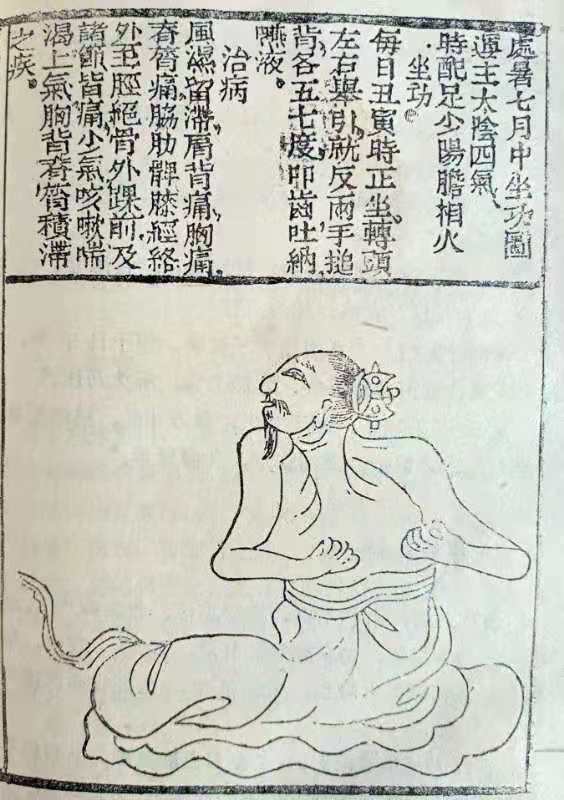 處暑七月中坐功圖
運主太陰四氣
時配足少陽膽相火
坐功
每日丑寅時正坐轉頭
左右舉引就反兩手搥
背各五七度叩齒吐納
嚥液。
治病
風濕留滯肩背痛胸痛
脊膂痛脇肋髀膝經絡
外至脛絕骨外踝前及
諸節皆痛少氣咳嗽喘
渴上氣胸背脊膂積滯
之疾。